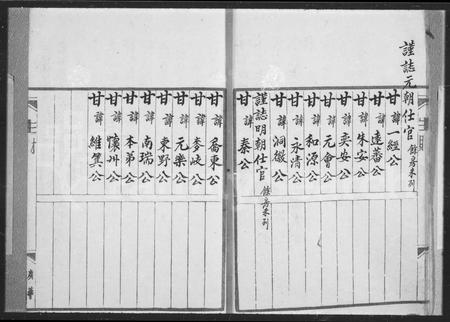 謹誌元朝仕官 餘房未列
甘諱一經公
甘諱遠蕃公
甘諱朱安公
甘諱奕安公
甘諱元會公
甘諱和源公
甘諱永清公
甘諱洞徽公
謹誌明朝仕官 餘房未列
甘諱泰公
甘諱喬東公
甘諱麥岐公
甘諱元樂公
甘諱東野公
甘諱南瑞公
甘諱本弟公
甘諱懷州公
甘諱維箕公